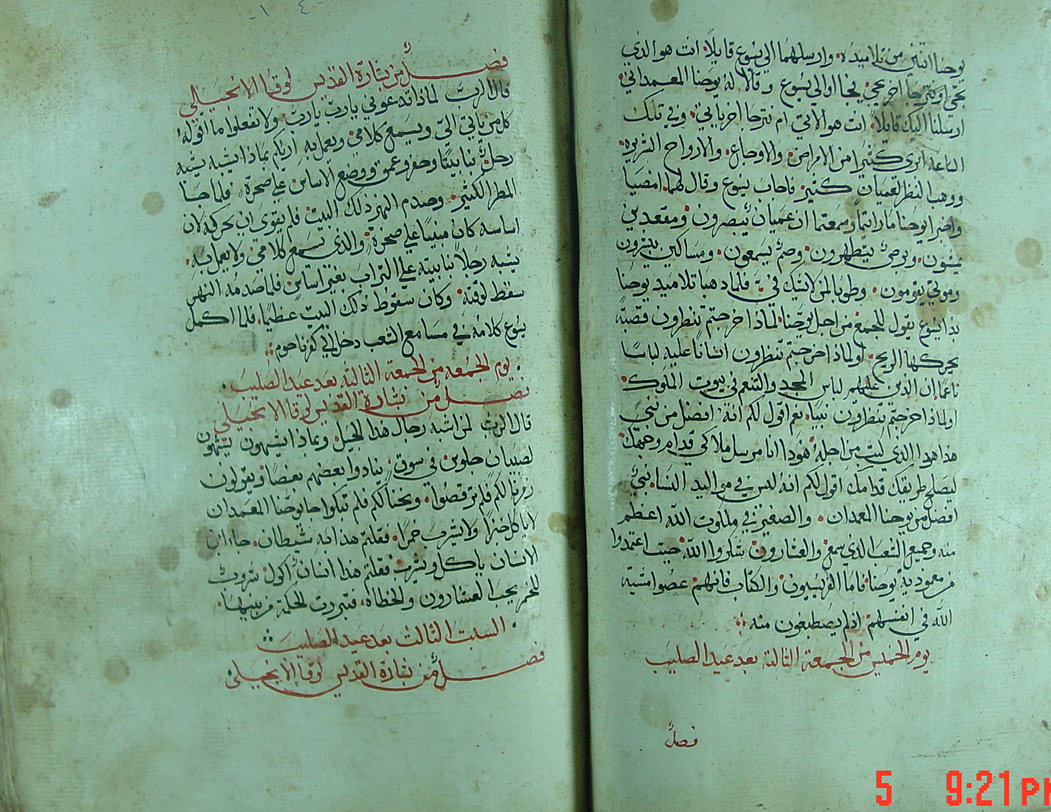 يوحنا اثنين من تلاميذه وارسلهما الى يسوع قايلاً انت هو الذي
يجي او نترجا اخر فجا الى يسوع وقالا له يوحنا المعمداني
ارسلنا اليك قايلا انت هو الاتي ام نترجا اخر ياتي وفي تلك
الساعة ابرى كثيرا من الامراض والاوجاع والارواح الشريره
ووهب النظر لعميان كثير فاجاب يسوع وقال لهما امضيا
واخبرا يوحنا ما رايتما وسمعتما ان عميان يبصرون ومقعدين
يمشون وبرص يتطهرون وصم يسمعون ومساكين يبشرون
وموتى يقومون وطوبا لمن لا يشك في فلما ذهبا تلاميذ يوحنا
بدا يسوع يقول للجمع من اجل يوحنا لماذا خرجتم تنظرون قصبة
يحركها الريح او لماذا خرجتم تنظرون انسانا عليه لباسا
ناعما ان الذين عليهم لباس المجد والتنعم في بيوت الملوك
او لماذا خرجتم تنظرون نبيا نعم اقول لكم انه افضل من نبي
هذا هو الذي كتب من اجله هوذا انا مرسل ملاكي قدام وجهك
ليصلح طريقك قدامك اقول لكم انه ليس في مواليد النسا نبي
افضل من يوحنا المعمدان والصغير في ملكوت الله اعظم
منه وجميع الشعب الذي سمع والعشارون شكروا الله حيث اعتمدوا
من معمودية يوحنا فاما الفريسيون والكتاب فانهم عصوا مشية
الله في انفسهم اذ لم يصطبغون منه
يوم الخميس من الجمعة الثالثة بعد عيد الصليب
فصل
فصل من بشارة القديس لوقا الانجيلي
قال الرب لماذا تدعوني يا رب يا رب ولا تفعلوا ما اقوله
كل من ياتي الي ويسمع كلامي ويعمل به اريكم بماذا يشبه يشبه
رجل بنا بيتا وحفر وعمق ووضع الاساس على صخرة فلما جا
المطر الكثير وصدم النهر ذلك البيت فلم يقوى ان يحركه لان
اساسه كان مبنيا على صخرة والذي يسمع كلامي ولا يعمل به
يشبه رجلا بنا بيته على التراب بغير اساس فلما صدمه النهر
سقط لوقته وكان سقوط ذلك البيت عظيما فلما اكمل
يسوع كلامه في مسامع الشعب دخل الى كفرناحوم
يوم الجمعه من الجمعة الثالثة بعد عيد الصليب
فصل من بشارة القديس لوقا الانجيلي
قال الرب لمن اشبه رجال هذا الجيل وبماذا يشبهون يشبهون
لصبيان جلوس في سوق ينادوا بعضهم بعضا ويقولون
زمرنا لكم فلم ترقصوا ونحنا لكم فلم تبكوا جا يوحنا المعمدان
لا ياكل خبزا ولا يشرب خمرا فقلتم هذا انه شيطان جا ابن
الانسان ياكل ويشرب فقلتم هذا انسان اكول شروب
للخمر يحب العشارون والخطاة فتبررت الحكمة من بنيها
السبت الثالث بعد عيد الصليب
فصل من بشارة القديس لوقا الانجيلي
5 9:21 PM